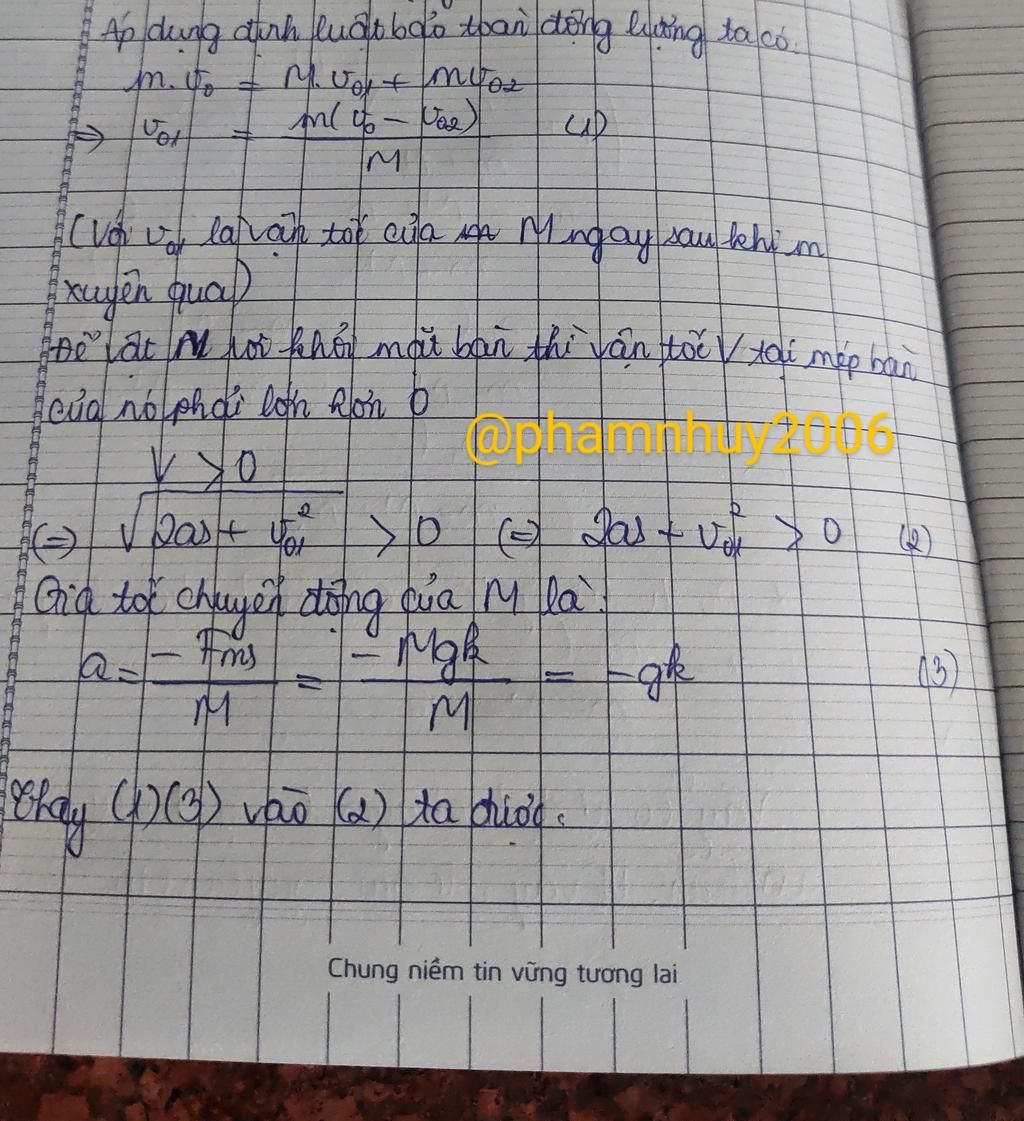 Áp dụng định luật bảo toàn động lượng ta có.
m.v₀ = M.v₀₁ + mv₀₂
=> v₀₁ = m(v₀ - v₀₂) / M (1)
(Với v₀₁ là vận tốc của M ngay sau khi m
xuyên qua)
Để vật M rơi khỏi mặt bàn thì vận tốc V tại mép bàn
của nó phải lớn hơn 0
@phamnhuy2006
V > 0
(=) √(2as + v₀₁²) > 0 (=) 2as + v₀₁² > 0 (2)
Gia tốc chuyển động của M là:
a = -Fms / M = -Mgk / M = -gk (3)
Thay (1)(3) vào (2) ta được:
Chung niềm tin vững tương lai